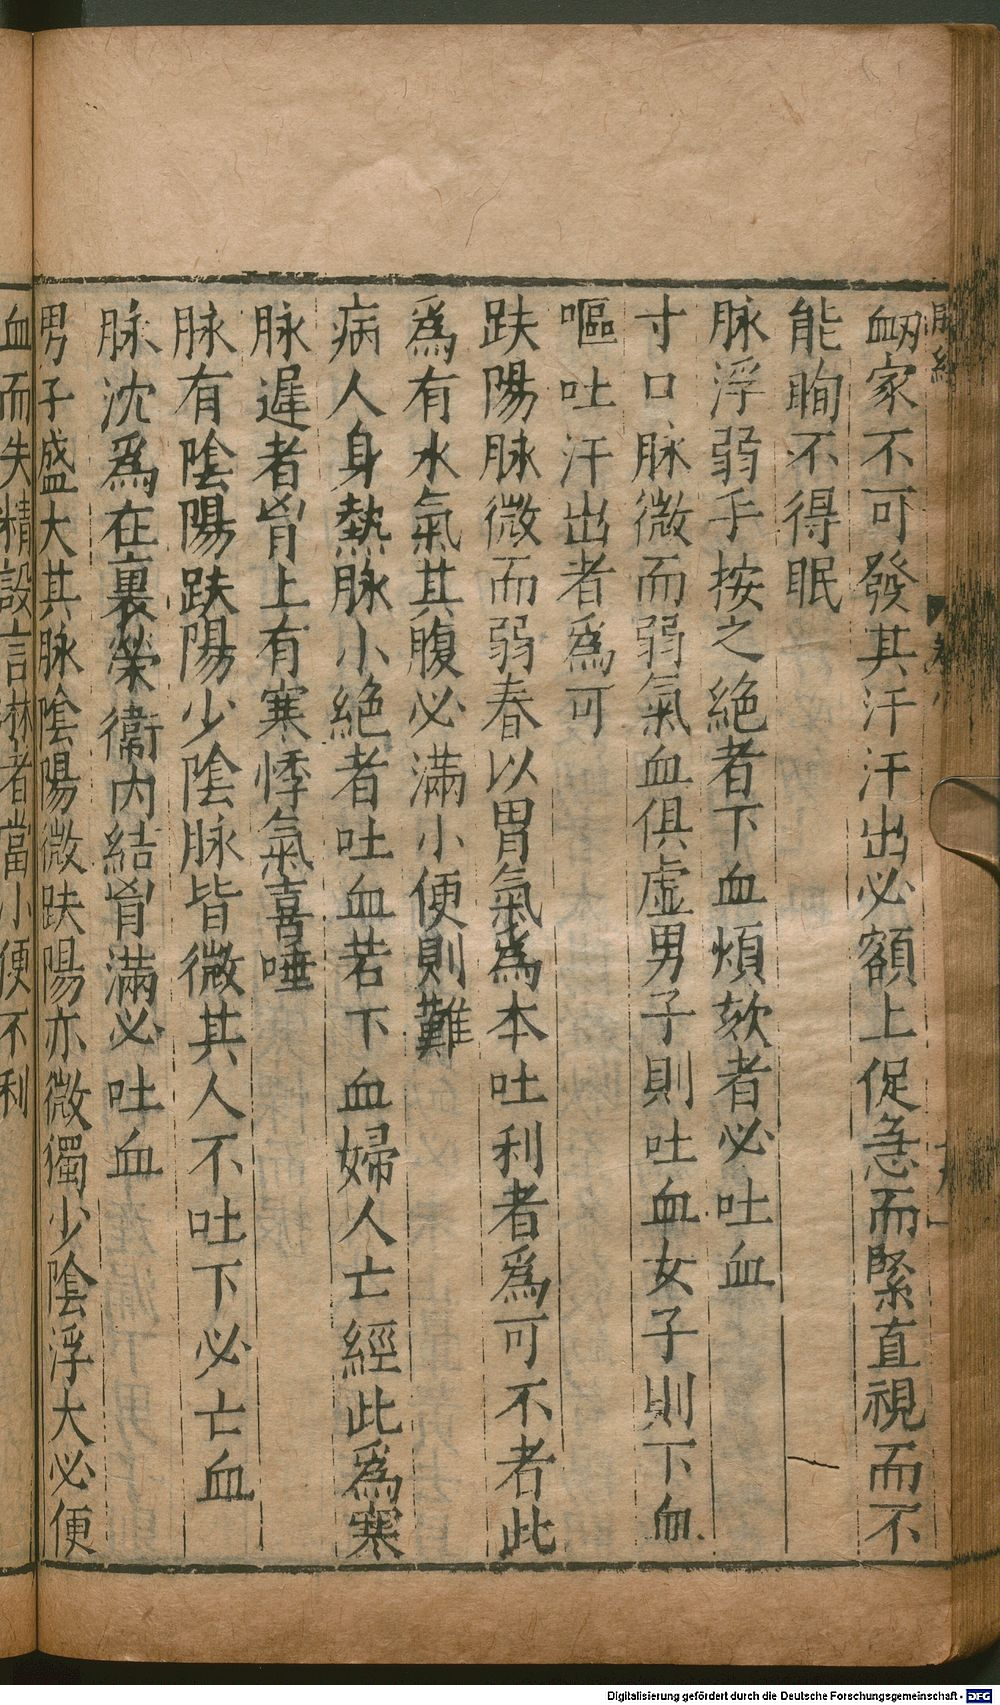 衂家不可發其汗汗出必額上促急而緊直視而不
能眴不得眠
脉浮弱手按之絶者下血煩欬者必吐血
寸口脉微而弱氣血俱虚男子則吐血女子則下血
嘔吐汗出者為可
趺陽脉微而弱春以胃氣為本吐利者為可不者此
為有水氣其腹必滿小便則難
病人身熱脉小絶者吐血若下血婦人亡經此為寒
脉遲者胷上有寒悸氣喜唾
脉有陰陽趺陽少陰脉皆微其人不吐下必亡血
脉沈為在裏榮衛内結胷滿必吐血
男子盛大其脉陰陽微趺陽亦微獨少陰浮大必便
血而失精設言淋者當小便不利
Digitalisierung gefördert durch die Deutsche Forschungsgemeinschaft - DFG